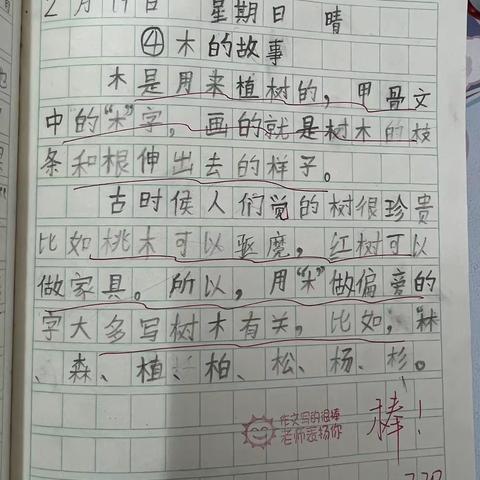 2月19日 星期日 晴
④木的故事
木是用来植树的，甲骨文
中的“木”字，画的就是树木的枝
条和根伸出去的样子。
古时候人们觉的树很珍贵
比如桃木可以驱魔，红树可以
做家具。所以，用“木”做偏旁的
字大多写树木有关，比如，“林
、森、植、柏、松、杨、杉。
作文写的很棒
老师表扬你
棒！